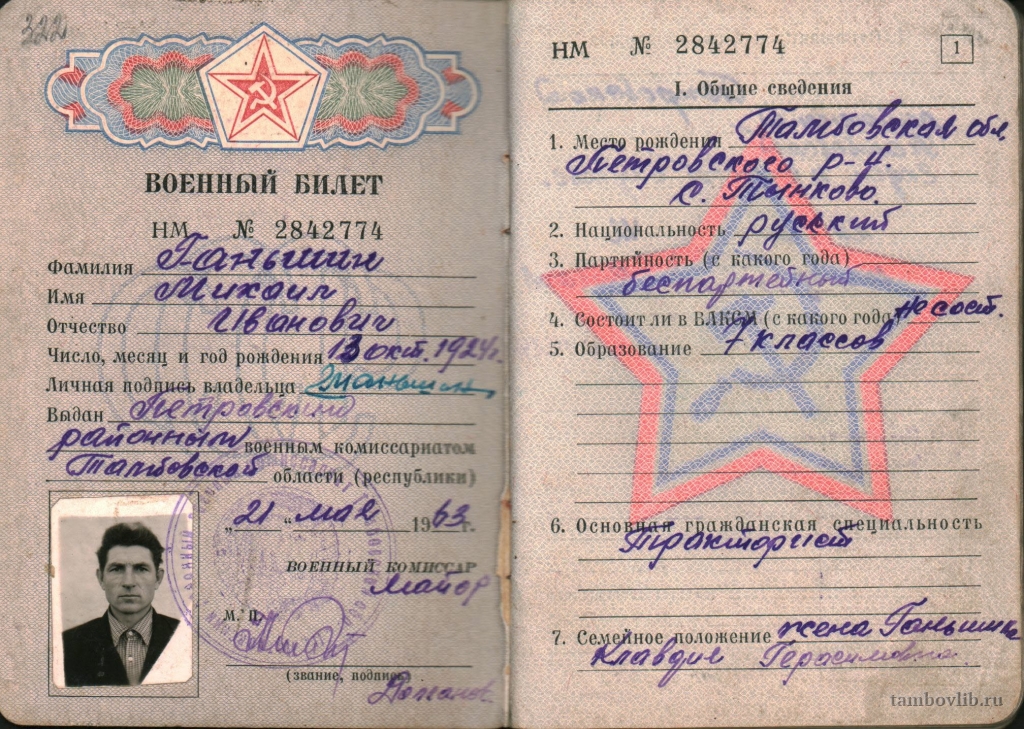 322
ВОЕННЫЙ БИЛЕТ
НМ № 2842774
Фамилия Ганьшин
Имя Михаил
Отчество Иванович
Число, месяц и год рождения 13 окт. 1924 г.
Личная подпись владельца Ганьшин
Выдан Петровским
районным военным комиссариатом
Тамбовской области (республики)
„21“ мая 1963 г.
ВОЕННЫЙ КОМИССАР
майор
М. П.
(звание, подпись)
НМ № 2842774
1
I. Общие сведения
1. Место рождения Тамбовская обл.
Петровского р-н.
с. Тынково.
2. Национальность руський
3. Партийность (с какого года)
беспартейный
4. Состоит ли в ВЛКСМ (с какого года) не сост.
5. Образование 7 классов
6. Основная гражданская специальность
Тракторист
7. Семейное положение жена Ганьшина
Клавдия Герасимовна.
tambovlib.ru